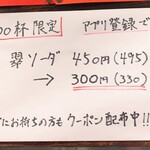 00杯限定 アプリ登録で
翠ソーダ 450円(495)
→ 300円(330)
にお持ちの方も クーポン配布中!!